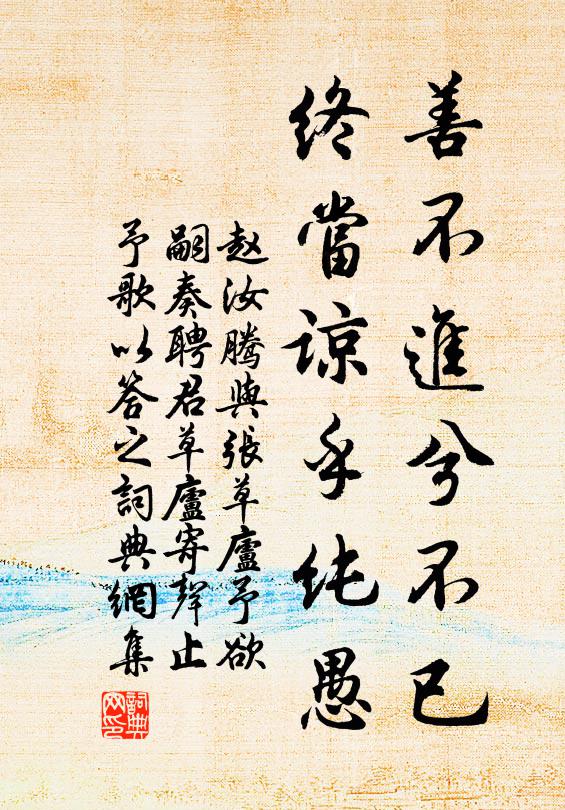 善不進兮不已
終當諒乎纯愚
赵汝騰與張草廬予欲
嗣奏聘君草廬寄聲止
予歌以答之詞典網集
詞典
网印